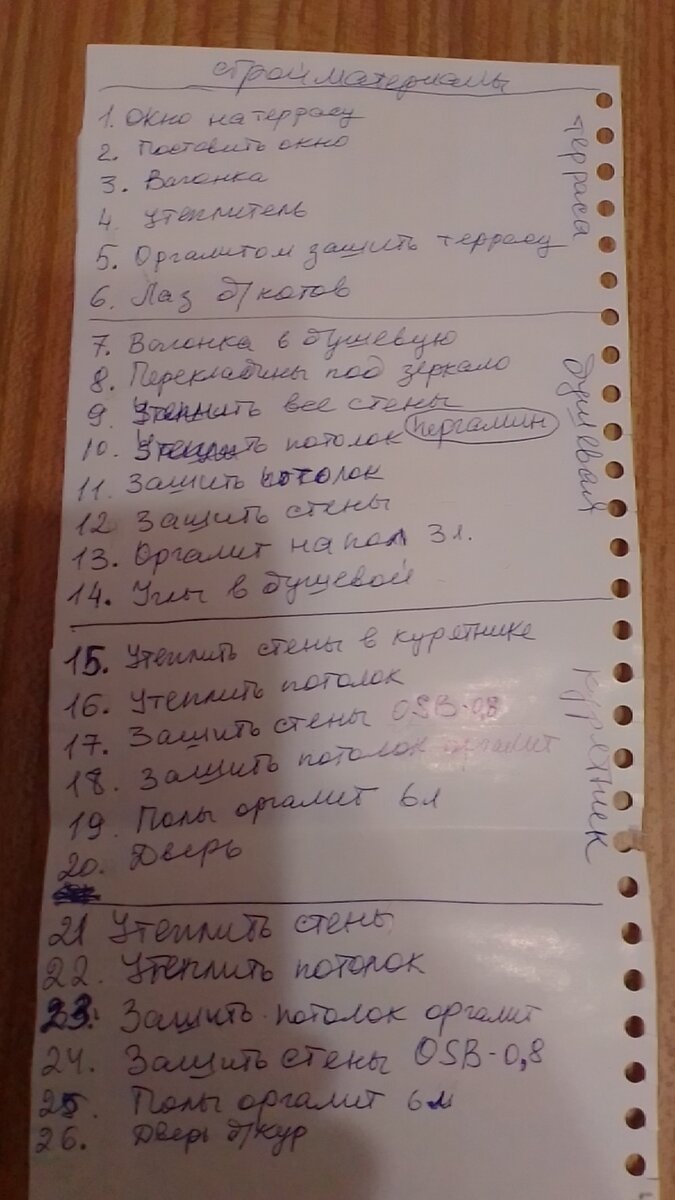 стройматериалы
1. Окно на террасу
2. Поставить окно
3. Вагонка
4. Утеплитель
5. Оргалитом зашить террасу
6. Лаз д/котов
терраса
7. Вагонка в душевую
8. Перекладины под зеркало
9. Утеплить все стены
10. Утеплить потолок пергамин
11. Зашить потолок
12. Зашить стены
13. Оргалит на пол 3л.
14. Углы в душевой
душевая
15. Утеплить стены в курятнике
16. Утеплить потолок
17. Зашить стены OSB-0,8
18. Зашить потолок оргалит
19. Полы оргалит 6л
20. Дверь
курятник
21 Утеплить стены
22. Утеплить потолок
23. Зашить потолок оргалит
24. Зашить стены OSB-0,8
25. Полы оргалит 6л
26. Дверь д/кур